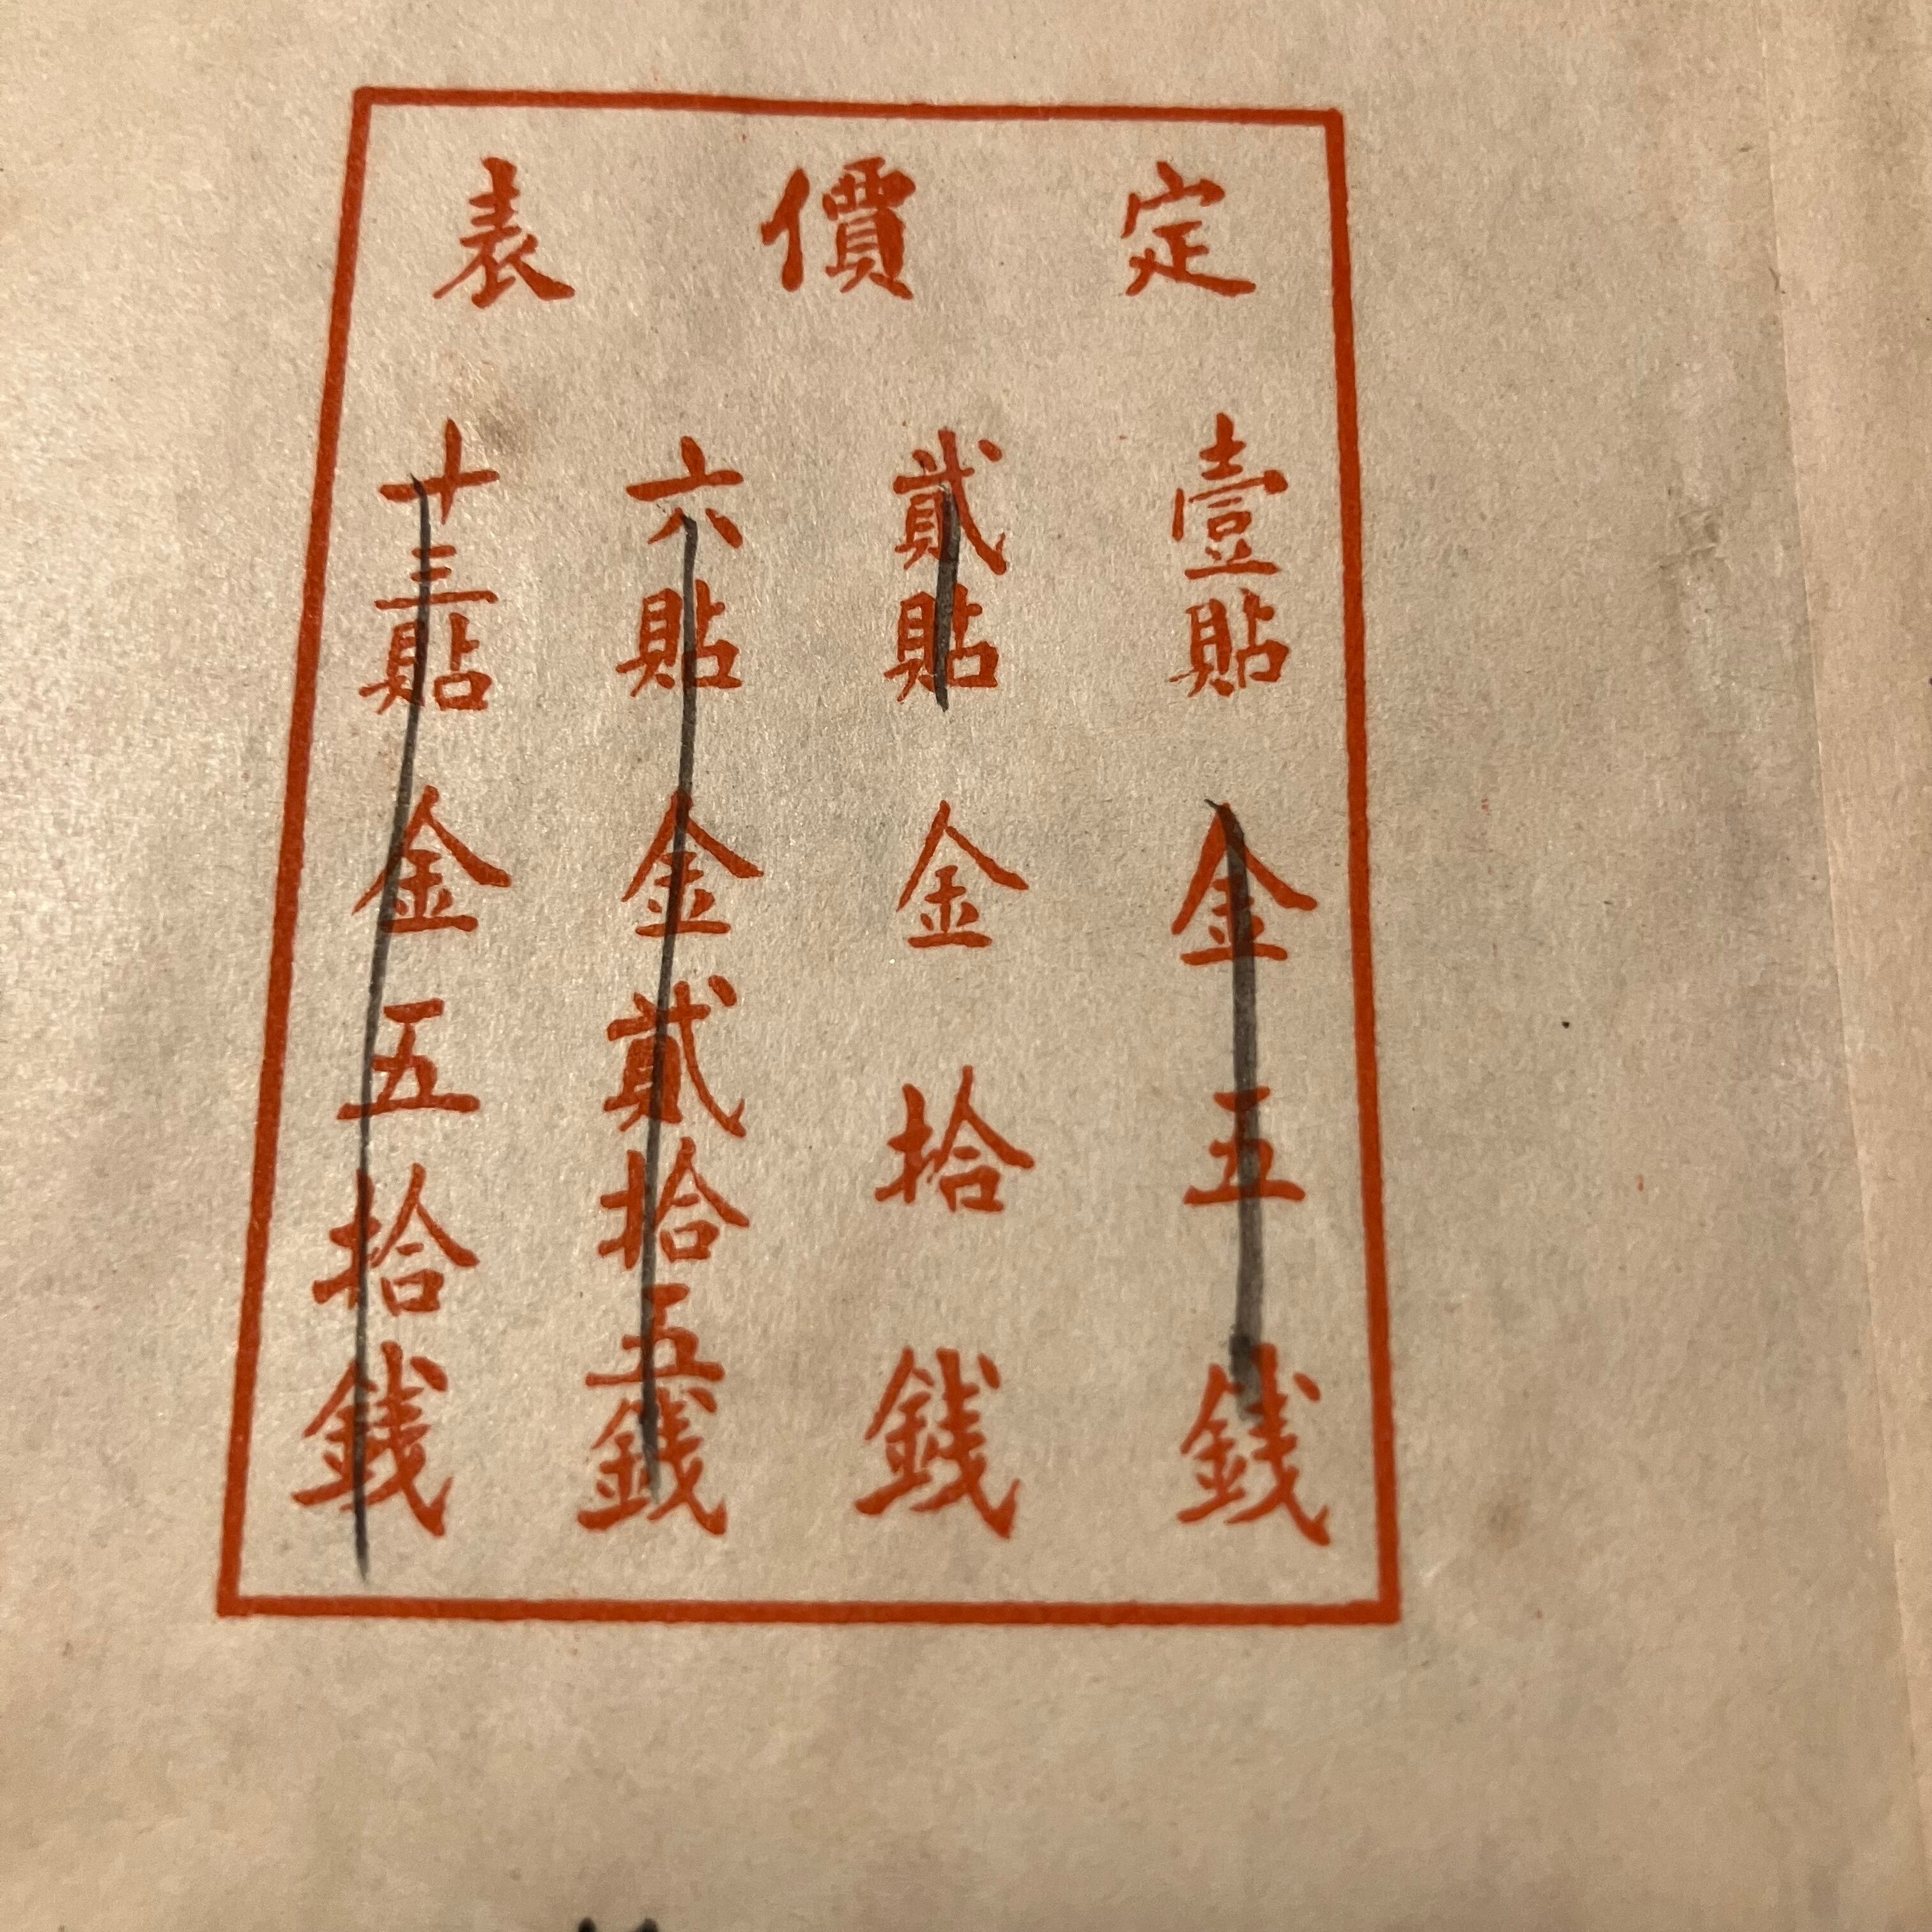 定價表
壹貼 金五銭
貳貼 金拾銭
六貼 金貳拾五銭
十三貼 金五拾銭